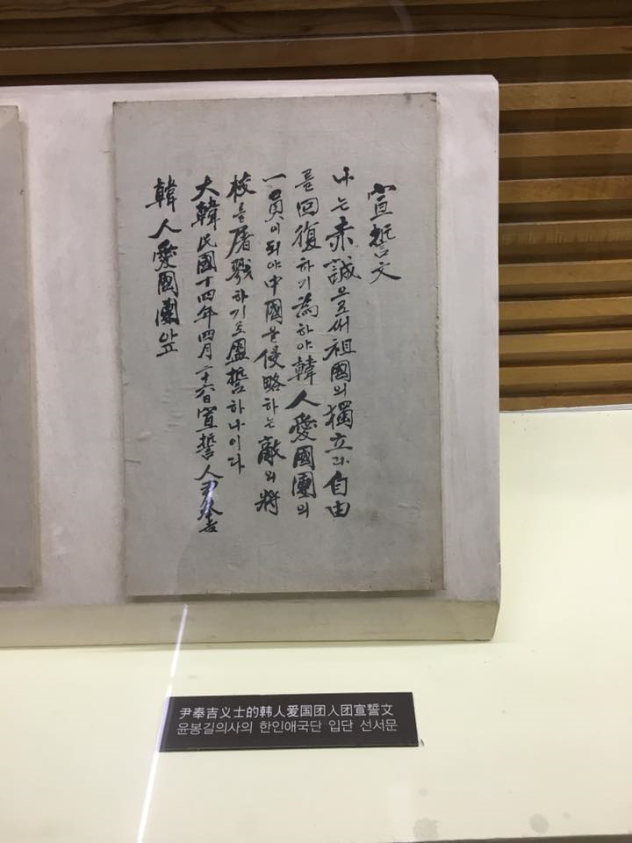 宣誓文
나는赤誠으로써祖國의獨立과自由
를回復하기爲하야韓人愛國團의
一員이되야中國을侵略하는敵의將
校를屠戮하기로盟誓하나이다
大韓民國十四年四月二十六日宣誓人尹奉吉
韓人愛國團앞
尹奉吉义士的韩人爱国团入团宣誓文
윤봉길의사의 한인애국단 입단 선서문